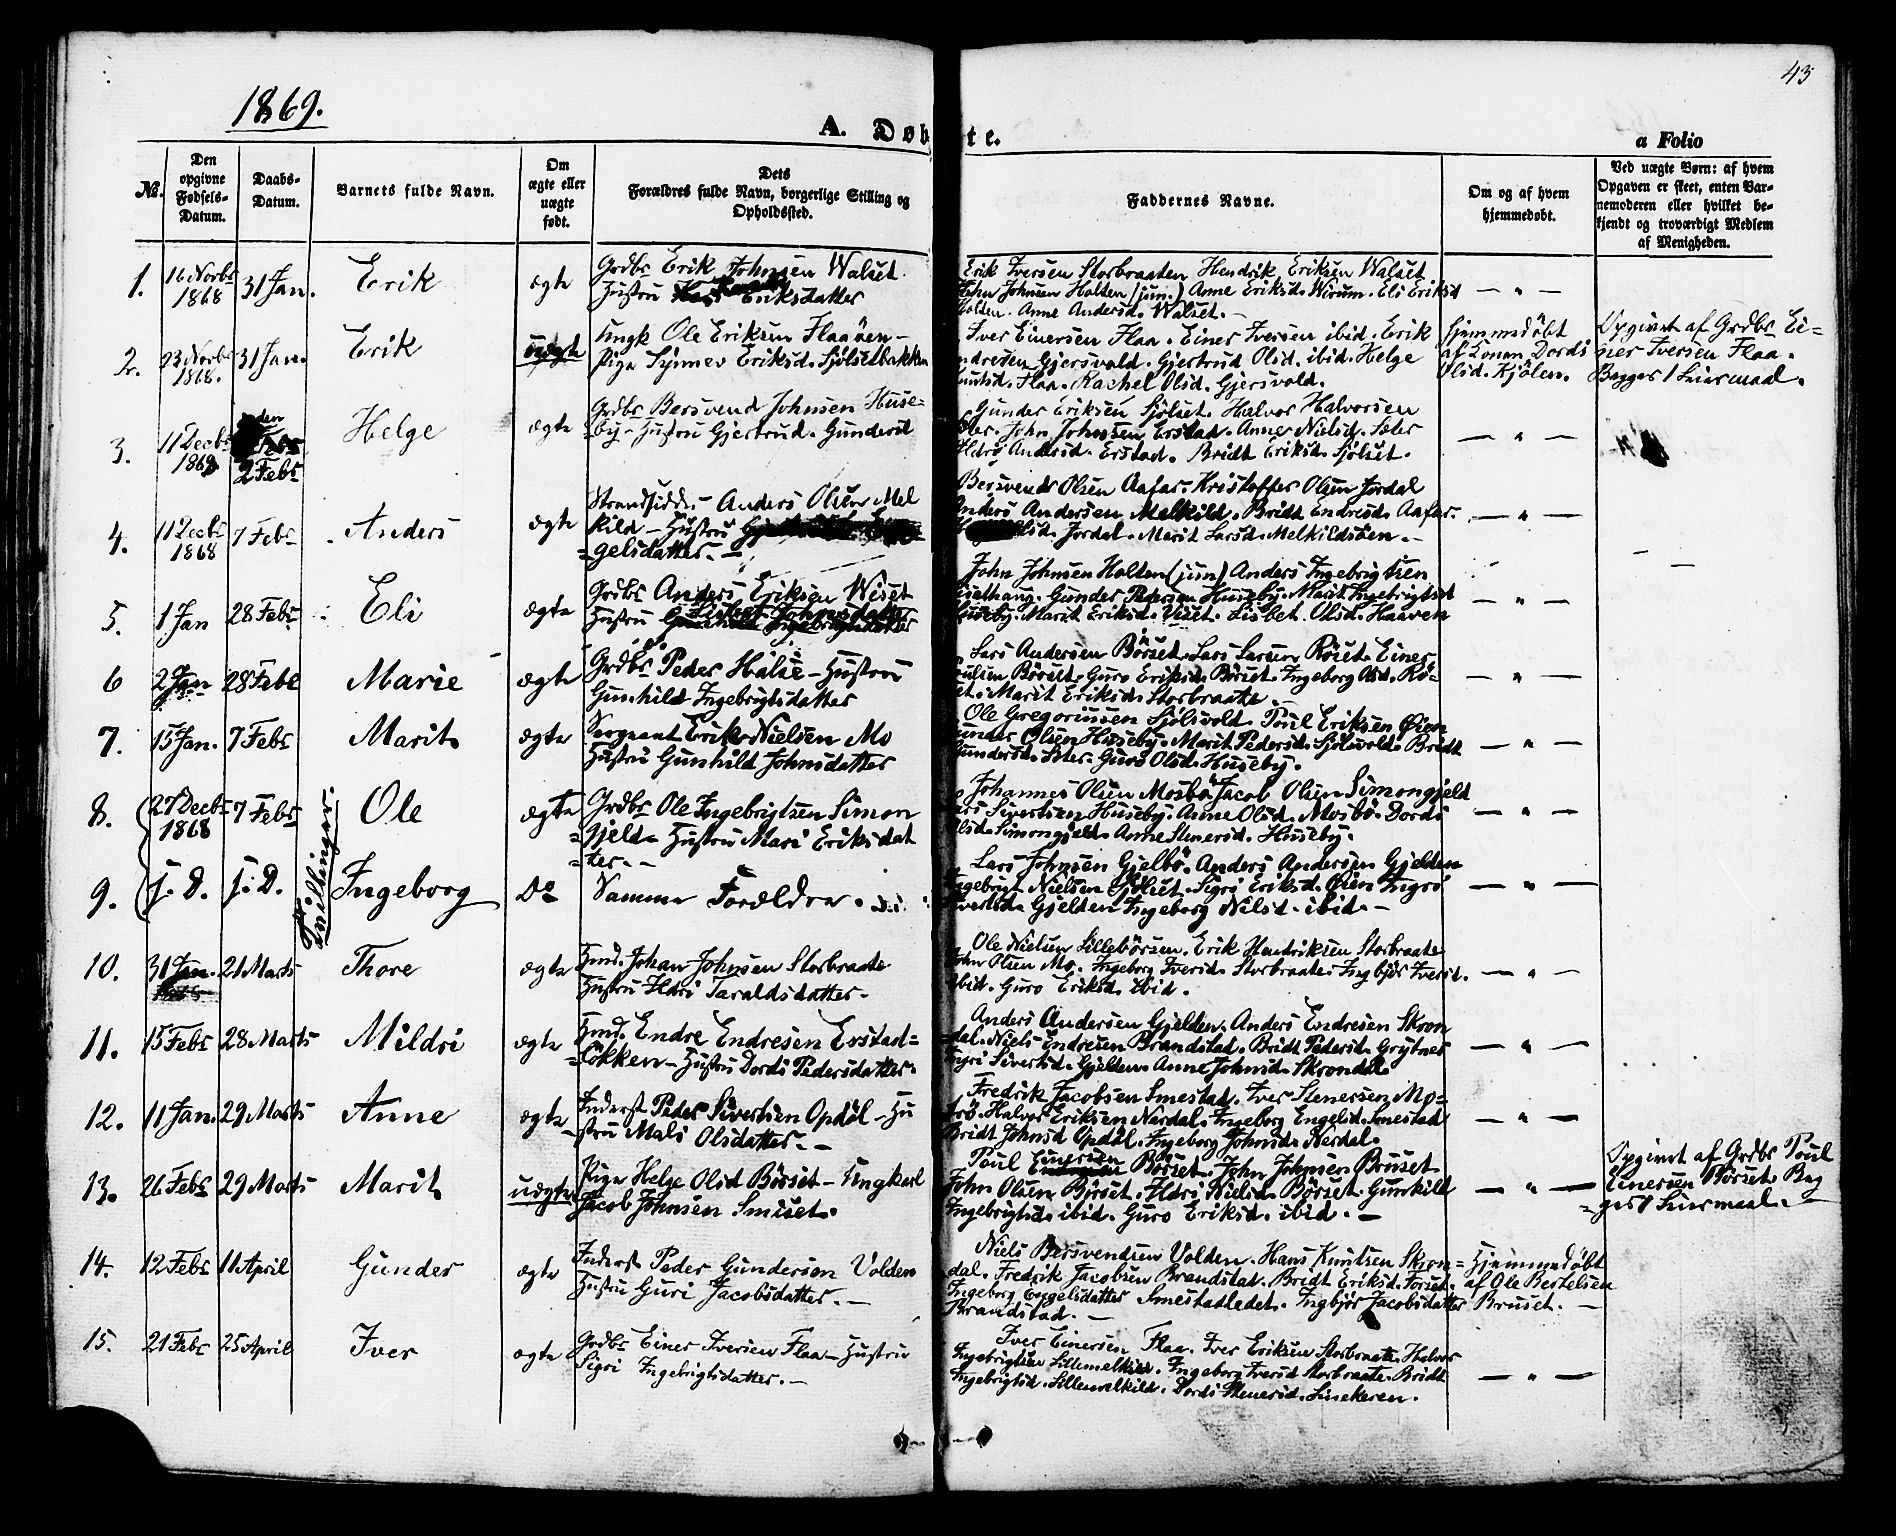 43
1869.
A. Døbte.
a Folio
No.
Den opgivne Fødsels-Datum.
Daabs-Datum.
Barnets fulde Navn.
Om ægte eller uægte født.
Dets Forældres fulde Navn, borgerlige Stilling og Opholdssted.
Faddernes Navne.
Om og af hvem hjemmedøbt.
Ved uægte Børn: af hvem Opgaven er skeet, enten Barnemoderen eller hvilket bekjendt og troværdigt Medlem af Menigheden.
1. 16 Novbr 1868 31 Jan. Erik ægte
Grdbr Erik Johnsen Walset
Hustru Eriksdatter
Erik Iversen Storbraaten Hendrik Eriksen Walset
John Johnsen Holten (jun.) Anne Eriksd. Wirum. Eli Eriksd
Holten. Anne Andersd. Walset.
— " —
2. 23 Novbr 1868. 31 Jan. Erik uægte
Ungk Ole Eriksen Flaaöen —
Pige Synnev Eriksd. Sjölsetbakken
Iver Einersen Flaa. Einer Iversen ibid. Erik
Endresen Gjersvold. Gjertrud Olsd. ibid. Helge
Knutsd. Flaa. Rachel Olsd. Gjersvold.
Hjemmedöbt
af Konen Dordi
Olsd. Kjölen.
Opgivet af Grdbr Ei-
ner Iversen Flaa.
Begges 1 Leiermaal.
3. 11 Decbr 1868 den 2 Febr Helge ægte
Grdbr Bersvend Johnsen Huse-
by — Hustru Gjertrud. Gundersd
Gunder Eriksen Sjölset. Halvor Halvorsen
Sæter. John Johnsen Erstad. Anne Nielsd. Sæter
Ildri Andersd. Erstad. Bridt Eriksd. Sjölset.
— " —
4. 11 Decbr 1868 7 Febr Anders ægte
Strandsidd. — Anders Olsen Mel
kild — Hustru
=gelsdatter. —
Bersvend Olsen Aafar. Kristoffer Olsen Jordal
Anders Andersen Melkild. Bridt Endresd. Aafar.
Jordal. Marit Larsd. Melkildsöen. —
— " —
5. 1 Jan 28 Febr Eli ægte
Grdbr Anders Eriksen Wiset
Hustru Lisbet Johnsdatter
John Johnsen Holten (jun) Anders Ingebrigtsen
Gunder Pedersen Huseby. Marit Ingebrigtsd
Huseby. Marit Eriksd. Viset. Lisbet Olsd. Haaven
— " —
6 2 Jan 28 Febr Marie ægte
Grdbr Peder Halse — Hustru
Gunhild Ingebrigtsdatter
Lars Andersen Börset. Lars Larsen Röset. Einer
Poulsen Börset. Guro Eriksd. Börset. Ingeborg Olsd. Rö-
set. Marit Eriksd. Storbraate
— " —
7. 15 Jan. 7 Febr Marit ægte
Sergeant Erik Nielsen Mo
Hustru Gunhild Johnsdatter
Ole Gregoriusen Sjölsvold. Poul Eriksen Öien
Gunder Olsen Huseby. Marit Pedersd. Sjölsvold. Bridt
Gundersd. Sæter. Guro Olsd. Huseby.
— " —
8. 27 Decbr 1868 7 Febr Ole ægte
Tvillinger.
Grdbr Ole Ingebrigtsen Simon
=gjeld — Hustru Mari Eriksdat
=ter. —
Johannes Olsen Mosbö. Jacob Olsen Simongjeld
Lars Sivertsen Huseby. Anne Olsd. Mosbö. Dordi
Olsd. Simongjeld. Anne Stenersd. Huseby.
— " —
9. j. D. j. D. Ingeborg Do
Samme Forældre.
Lars Johnsen Gjelbö. Anders Andersen Gjelden
Ingebrigt Nielsen Sjölset. Sigri Eriksd. Öien Ingri
Sivertsd. Gjelden Ingeborg Nielsd. ibid. —
— " —
10. 31 Jan. 21 Marts Thore ægte
Hmd. Johan Johnsen Storbraate
Hustru Ildri Taraldsdatter —
Ole Nielsen Lillebörsen. Erik Hendriksen Storbraate
John Olsen Mo. Ingeborg Iversd. Storbraate. Ingbjör Iversd.
ibid. Guro Eriksd. ibid.
— " —
11. 15 Febr 28 Marts Mildri ægte
Hmd. Endre Endresen Erstad=
=lökken — Hustru Dordi Pedersdatter.
Anders Andersen Gjelden. Anders Endresen Skron
dal. Niels Endresen Brandstad. Bridt Pedersd. Grytnes
Ingri Sivertsd. Gjelden. Anne Johnsd. Skrondal.
— " —
12. 11 Jan. 29 Marts Anne ægte
Inderst Peder Sivertsen Opdöl — Hu
stru Mali Olsdatter. —
Fredrik Jacobsen Smestad. Iver Stenersen Mo-
Halvor Eriksen Nerdal. Ingeborg Engelsd. Smestad
Bridt Johnsd Opdöl. Ingeborg Johnsd. Nerdal.
— " —
13. 26 Febr 29 Marts Marit uægte
Pige Helge Olsd Börset — Ungkarl
Jacob Johnsen Smiset.
Poul Einersen Börset. John Johnsen Bruset.
John Olsen Börset. Ildri Nielsd. Börset. Gunhild
Ingebrigtsd. ibid. Guro Eriksd. ibid. —
— " —
Opgivet af Grdbr Poul
Einersen Börset. Beg
=ges 1 Leiermaal. —
14. 12 Febr 11 April Gunder ægte
Inderst Peder Gundersen Volden
Hustru Guri Jacobsdatter. —
Niels Bersvendsen Volden. Hans Knudsen Skron=
dal. Fredrik Jacobsen Brandstad. Bridt Eriksd. Forset.
Ingeborg Engelsdatter Smestadledet. Ingbjör Jacobsdatter
Brandstad. —
Hjemmedöbt
af Ole Bertelsen
Bruset. —
15. 21 Febr 25 April Iver ægte
Grdbr Einer Iversen Flaa — Hustru
Sigri Ingebrigtsdatter. —
Iver Einersen Flaa. Iver Eriksen Storbraate. Halvor
Ingebrigtsen Lillemelkild. Ingeborg Iversd Storbraate. Bridt
Ingebrigtsd. Lillemelkild. Dordi Stenersd.
— " —